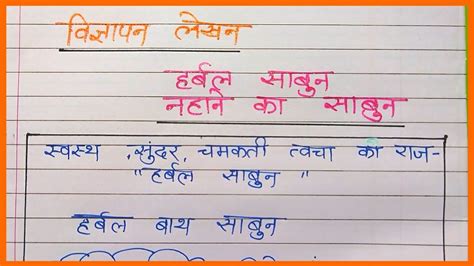 विज्ञापन लेखन
हर्बल साबुन
नहाने का साबुन
स्वस्थ ,सुंदर, चमकती त्वचा का राज-
"हर्बल साबुन "
हर्बल बाथ साबुन